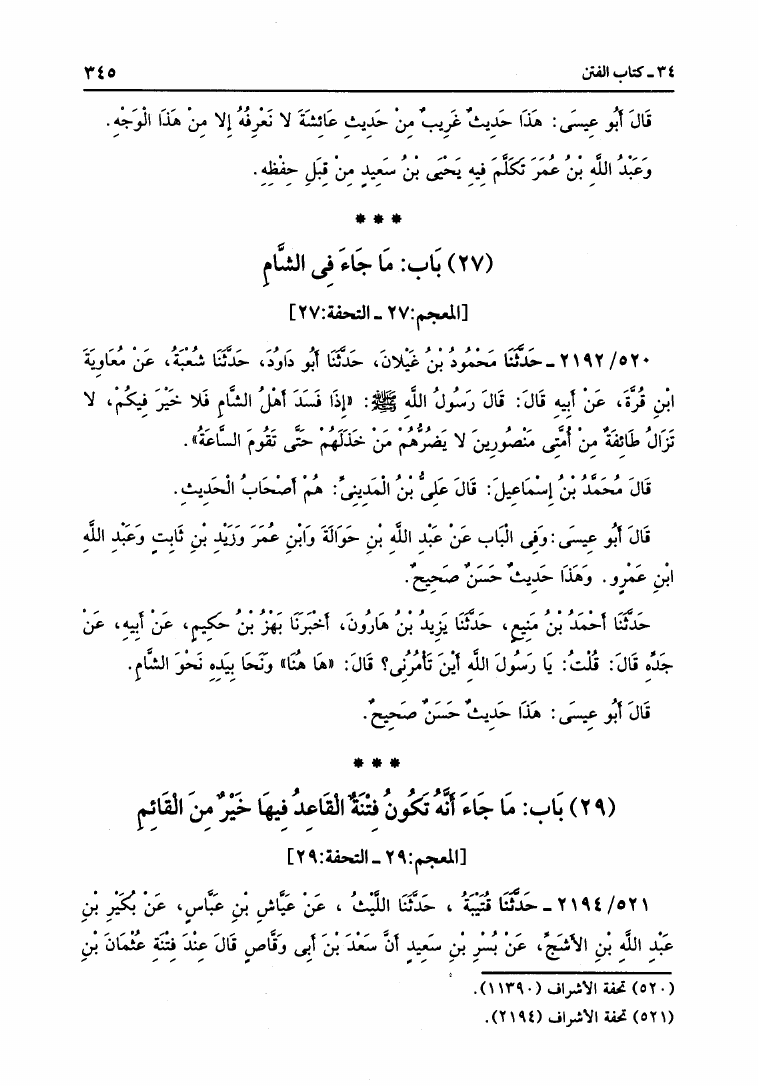 ٣٤ ـ كتاب الفتن ٣٤٥
قَالَ أَبُو عِيسَى: هَذَا حَدِيثٌ غَرِيبٌ مِنْ حَدِيثِ عَائِشَةَ لا نَعْرِفُهُ إِلا مِنْ هَذَا الْوَجْهِ.
وَعَبْدُ اللَّهِ بْنُ عُمَرَ تَكَلَّمَ فِيهِ يَحْيَى بْنُ سَعِيدٍ مِنْ قِبَلِ حِفْظِهِ.
* * *
(٢٧) بَاب: مَا جَاءَ فِى الشَّامِ
[المعجم:٢٧ ـ التحفة:٢٧]
٢١٩٢/٥٢٠ ـ حَدَّثَنَا مَحْمُودُ بْنُ غَيْلانَ، حَدَّثَنَا أَبُو دَاوُدَ، حَدَّثَنَا شُعْبَةُ، عَنْ مُعَاوِيَةَ
ابْنِ قُرَّةَ، عَنْ أَبِيهِ قَالَ: قَالَ رَسُولُ اللَّهِ ﷺ: «إِذَا فَسَدَ أَهْلُ الشَّامِ فَلا خَيْرَ فِيكُمْ، لا
تَزَالُ طَائِفَةٌ مِنْ أُمَّتِى مَنْصُورِينَ لا يَضُرُّهُمْ مَنْ خَذَلَهُمْ حَتَّى تَقُومَ السَّاعَةُ».
قَالَ مُحَمَّدُ بْنُ إِسْمَاعِيلَ: قَالَ عَلِىُّ بْنُ الْمَدِينِىِّ: هُمْ أَصْحَابُ الْحَدِيثِ.
قَالَ أَبُو عِيسَى: وَفِى الْبَاب عَنْ عَبْدِ اللَّهِ بْنِ حَوَالَةَ وَابْنِ عُمَرَ وَزَيْدِ بْنِ ثَابِتٍ وَعَبْدِ اللَّهِ
ابْنِ عَمْرٍو. وَهَذَا حَدِيثٌ حَسَنٌ صَحِيحٌ.
حَدَّثَنَا أَحْمَدُ بْنُ مَنِيعٍ، حَدَّثَنَا يَزِيدُ بْنُ هَارُونَ، أَخْبَرَنَا بَهْزُ بْنُ حَكِيمٍ، عَنْ أَبِيهِ، عَنْ
جَدِّهِ قَالَ: قُلْتُ: يَا رَسُولَ اللَّهِ أَيْنَ تَأْمُرُنِى؟ قَالَ: «هَا هُنَا» وَنَحَا بِيَدِهِ نَحْوَ الشَّامِ.
قَالَ أَبُو عِيسَى: هَذَا حَدِيثٌ حَسَنٌ صَحِيحٌ.
* * *
(٢٩) بَاب: مَا جَاءَ أَنَّهُ تَكُونُ فِتْنَةٌ الْقَاعِدُ فِيهَا خَيْرٌ مِنَ الْقَائِمِ
[المعجم:٢٩ ـ التحفة:٢٩]
٢١٩٤/٥٢١ ـ حَدَّثَنَا قُتَيْبَةُ، حَدَّثَنَا اللَّيْثُ، عَنْ عَيَّاشِ بْنِ عَبَّاسٍ، عَنْ بُكَيْرِ بْنِ
عَبْدِ اللَّهِ بْنِ الأَشَجِّ، عَنْ بُسْرِ بْنِ سَعِيدٍ أَنَّ سَعْدَ بْنَ أَبِى وَقَّاصٍ قَالَ عِنْدَ فِتْنَةِ عُثْمَانَ بْنِ
(٥٢٠) تحفة الأشراف (١١٣٩٠).
(٥٢١) تحفة الأشراف (٢١٩٤).